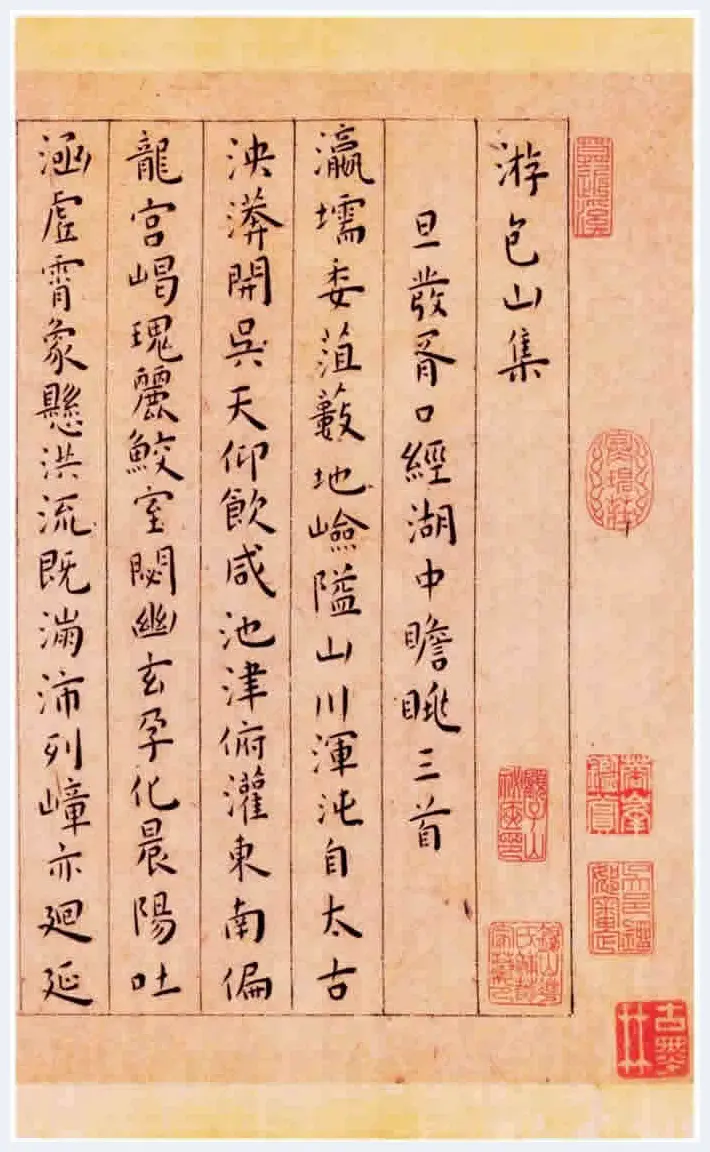 游包山集
旦發胥口經湖中瞻眺三首
瀛壖委菹藪地嶮隘山川渾沌自太古
泱漭開吳天仰飲咸池津俯灌東南偏
龍宮嵑瑰麗鮫室閟幽玄孕化晨陽吐
涵虛霄象懸洪流既滿沛列嶂亦迴延